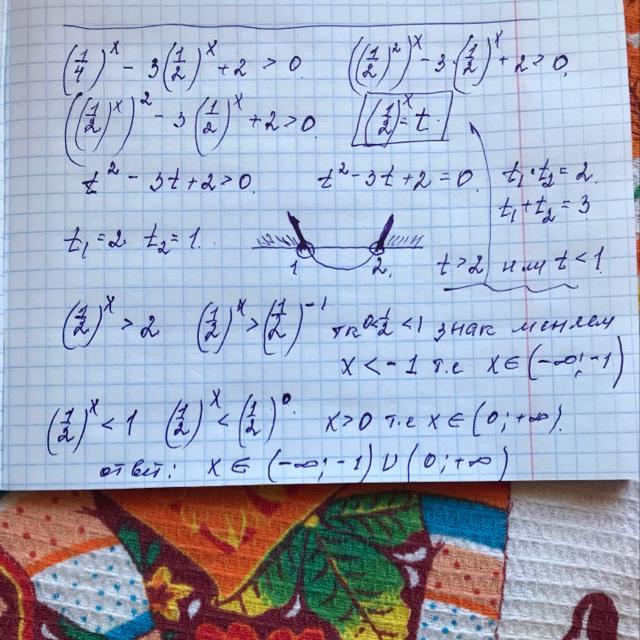 (1/4)^x - 3(1/2)^x + 2 > 0. ((1/2)^2)^x - 3·(1/2)^x + 2 > 0.
((1/2)^x)^2 - 3(1/2)^x + 2 > 0. (1/2)^x = t.
t^2 - 3t + 2 > 0. t^2 - 3t + 2 = 0. t₁·t₂ = 2.
t₁ + t₂ = 3
t₁ = 2. t₂ = 1.
1 2.
t > 2 или t < 1.
(1/2)^x > 2 (1/2)^x > (1/2)^-1 тк 0<1/2<1 знак меняем
x < -1 т.е x ∈ (-∞; -1)
(1/2)^x < 1 (1/2)^x < (1/2)^0. x > 0 т.е x ∈ (0; +∞).
ответ: x ∈ (-∞; -1) ∪ (0; +∞)